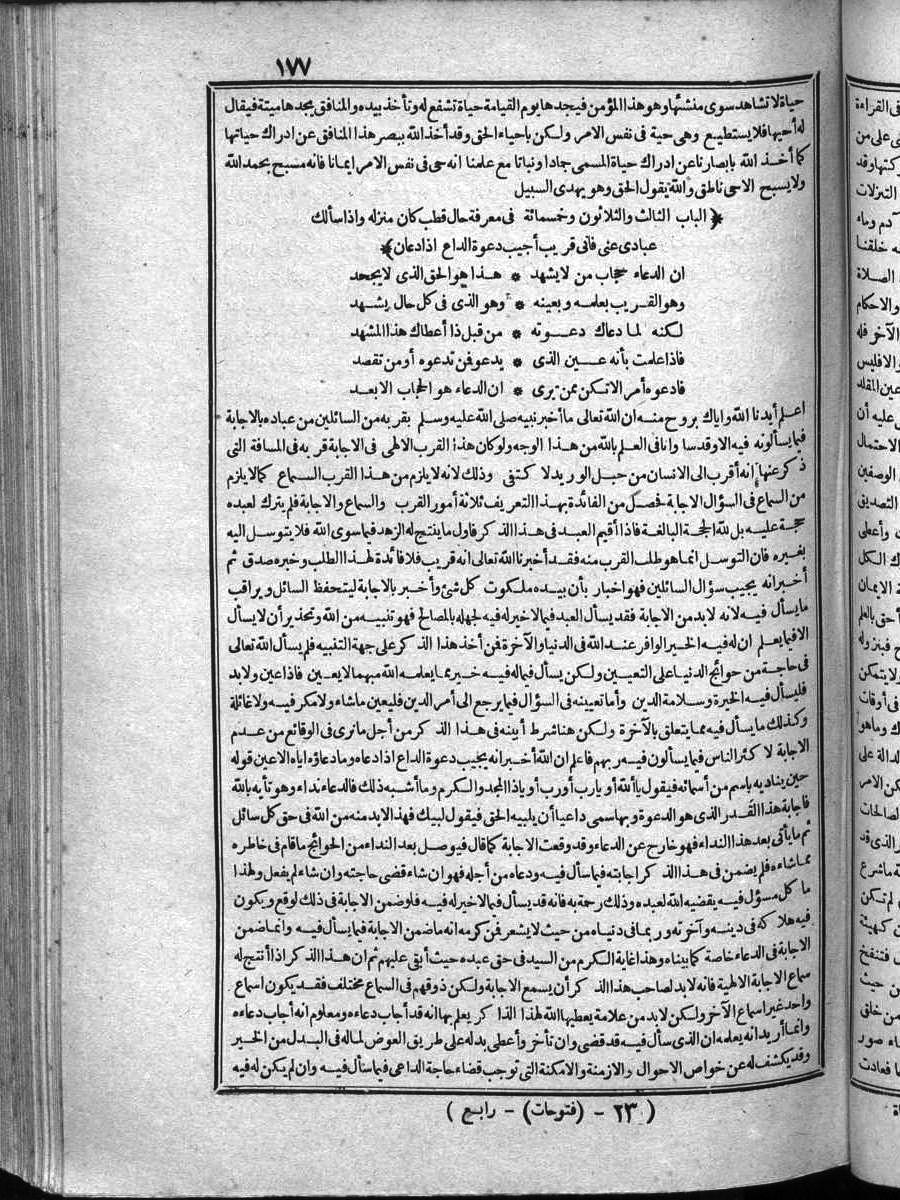 ١٧٧
حياة لا تشاهد سوى منشئها وهو هذا المؤمن فيجدها يوم القيامة حياة تشفع له وتأخذ بيده والمنافق يجدها ميتة فيقال
له أحيها فلا يستطيع وهى حية فى نفس الامر ولكن باحياء الحق وقد أخذ الله ببصر هذا المنافق عن ادراك حياتها
كما أخذ الله بابصارنا عن ادراك حياة المسمى جمادا ونباتا مع علمنا انه حى فى نفس الامر ايمانا فانه مسبح بحمد الله
ولا يسبح الاحى ناطق والله يقول الحق وهو يهدى السبيل
﴿ الباب الثالث والثلاثون وخمسمائة فى معرفة حال قطب كان منزله واذا سألك
عبادى عنى فانى قريب أجيب دعوة الداع اذا دعان ﴾
ان الدعاء حجاب من لا يشهد * هذا هو الحق الذى لا يجحد
وهو القريب بعلمه وبعينه * وهو الذى فى كل حال يشهد
لكنه لما دعاك دعوته * من قبل ذا أعطاك هذا المشهد
فاذا علمت بأنه عين الذى * يدعو فمن تدعوه أو من تقصد
فادعوه أمرا لا تكن ممن يرى * ان الدعاء هو الحجاب الابعد
اعلم أيدنا الله واياك بروح منه ان الله تعالى ما أخبر نبيه صلى الله عليه وسلم بقربه من السائلين من عباده بالاجابة
فيما يسألونه فيه الا وقد ساوانا فى العلم بالله من هذا الوجه ولو كان هذا القرب الالهى فى الاجابة قربه فى المسافة التى
ذكر عنها انه أقرب الى الانسان من حبل الوريد لا كتفى وذلك لانه لا يلزم من هذا القرب السماع كما لا يلزم
من السماع فى السؤال الاجابة فحصل من الفائدة بهذا التعريف ثلاثة أمور القرب والسماع والاجابة فلم يترك لعبده
حجة عليه بل لله الحجة البالغة فاذا أقيم العبد فى هذا الذكر فاول ما ينتج له الزهد فيما سوى الله فلا يتوسل اليه
بغيره فان التوسل انما هو طلب القرب منه فقد أخبرنا الله تعالى انه قريب فلا فائدة لهذا الطلب وخبره صدق ثم
أخبر انه يجيب سؤال السائلين فهو اخبار بأن بيده ملكوت كل شئ وأخبر بالاجابة ليتحفظ السائل ويراقب
ما يسأل فيه لانه لا بد من الاجابة فقد يسأل العبد فيما لا خير له فيه لجهله بالمصالح فهو تنبيه من الله وتحذير أن لا يسأل
الا فيما يعلم ان له فيه الخير الوافر عند الله فى الدنيا والآخرة فمن أخذ هذا الذكر على جهة التنبيه فلم يسأل الله تعالى
فى حاجة من حوائج الدنيا على التعيين ولكن يسأل فيما له فيه خير مما يعلمه الله مبهما لا يعين فاذا عين ولا بد
فليسأل فيه الخيرة وسلامة الدين وأما تعيينه فى السؤال فيما يرجع الى أمر الدين فليعين ما شاء ولا مكر فيه ولا غائلة
وكذلك ما يسأل فيه مما يتعلق بالآخرة ولكن هنا شرط أبينه فى هذا الذكر من أجل ما نرى فى الوقائع من عدم
الاجابة لا كثر الناس فيما يسألون فيه ربهم فاعلم ان الله أخبر انه يجيب دعوة الداع اذا دعاه وما دعاؤه اياه الا عين قوله
حين يناديه باسم من أسمائه فيقول يا ألله أو يا رب أو رب أو يا ذا المجد والكرم وما أشبه ذلك فالدعاء نداء وهو تأيه بالله
فاجابة هذا القدر الذى هو الدعوة وبها سمى داعيا أن يلبيه الحق فيقول لبيك فهذا لا بد منه من الله فى حق كل سائل
ثم ما يأتى بعد هذا النداء فهو خارج عن الدعاء وقد وقعت الاجابة كما قال فيوصل بعد النداء من الحوائج ما قام فى خاطره
مما شاءه فلم يضمن فى هذا الذكر اجابته فيما سأل فيه ودعاه من أجله فهو ان شاء قضى حاجته وان شاء لم يفعل ولهذا
ما كل مسؤل فيه يقضيه الله لعبده وذلك رحمة به فانه قد يسأل فيما لا خير له فيه فلو ضمن الاجابة فى ذلك لوقع ويكون
فيه هلاكه فى دينه وآخرته وربما فى دنياه من حيث لا يشعر فمن كرمه انه ما ضمن الاجابة فيما يسأل فيه وانما ضمن
الاجابة فى الدعاء خاصة كما بيناه وهذا غاية الكرم من السيد فى حق عبده حيث أبقى عليهم ثم ان هذا الذكر اذا أنتج له
سماع الاجابة الالهية فانه لا بد لصاحب هذا الذكر أن يسمع الاجابة ولكن ذوقهم فى السماع مختلف فقد يكون اسماع
واحد غير اسماع الآخر ولكن لا بد من علامة يعطيها الله لهذا الذاكر يعلم بها انه قد أجاب دعاءه ومعلوم انه أجاب دعاءه
وانما أريد انه يعلمه ان الذى سأل فيه قد قضى وان تأخر وأعطى بدله على طريق العوض لما له فى البدل من الخير
وقد يكشف له عن خواص الاحوال والازمنة والامكنة التى توجب قضاء حاجة الداعى فيما سأل فيه وان لم يكن له فيه
( ٢٣ - (فتوحات) - رابع )